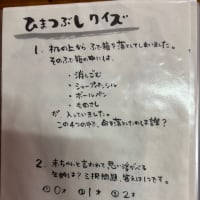 ひまつぶしクイズ
1. 机の上から ふで箱を落としてしまいました。
そのふで箱の中には、
・消しごむ
・シャープペンシル
・ボールペン
・ものさし
が、入っていました。
この4つの中で、命を落としたのは誰？
2. 赤ちゃんと言われて思い浮かべる
年齢は？三択問題、答えは1つです。
① 0才 ② 1才 ③ 2才